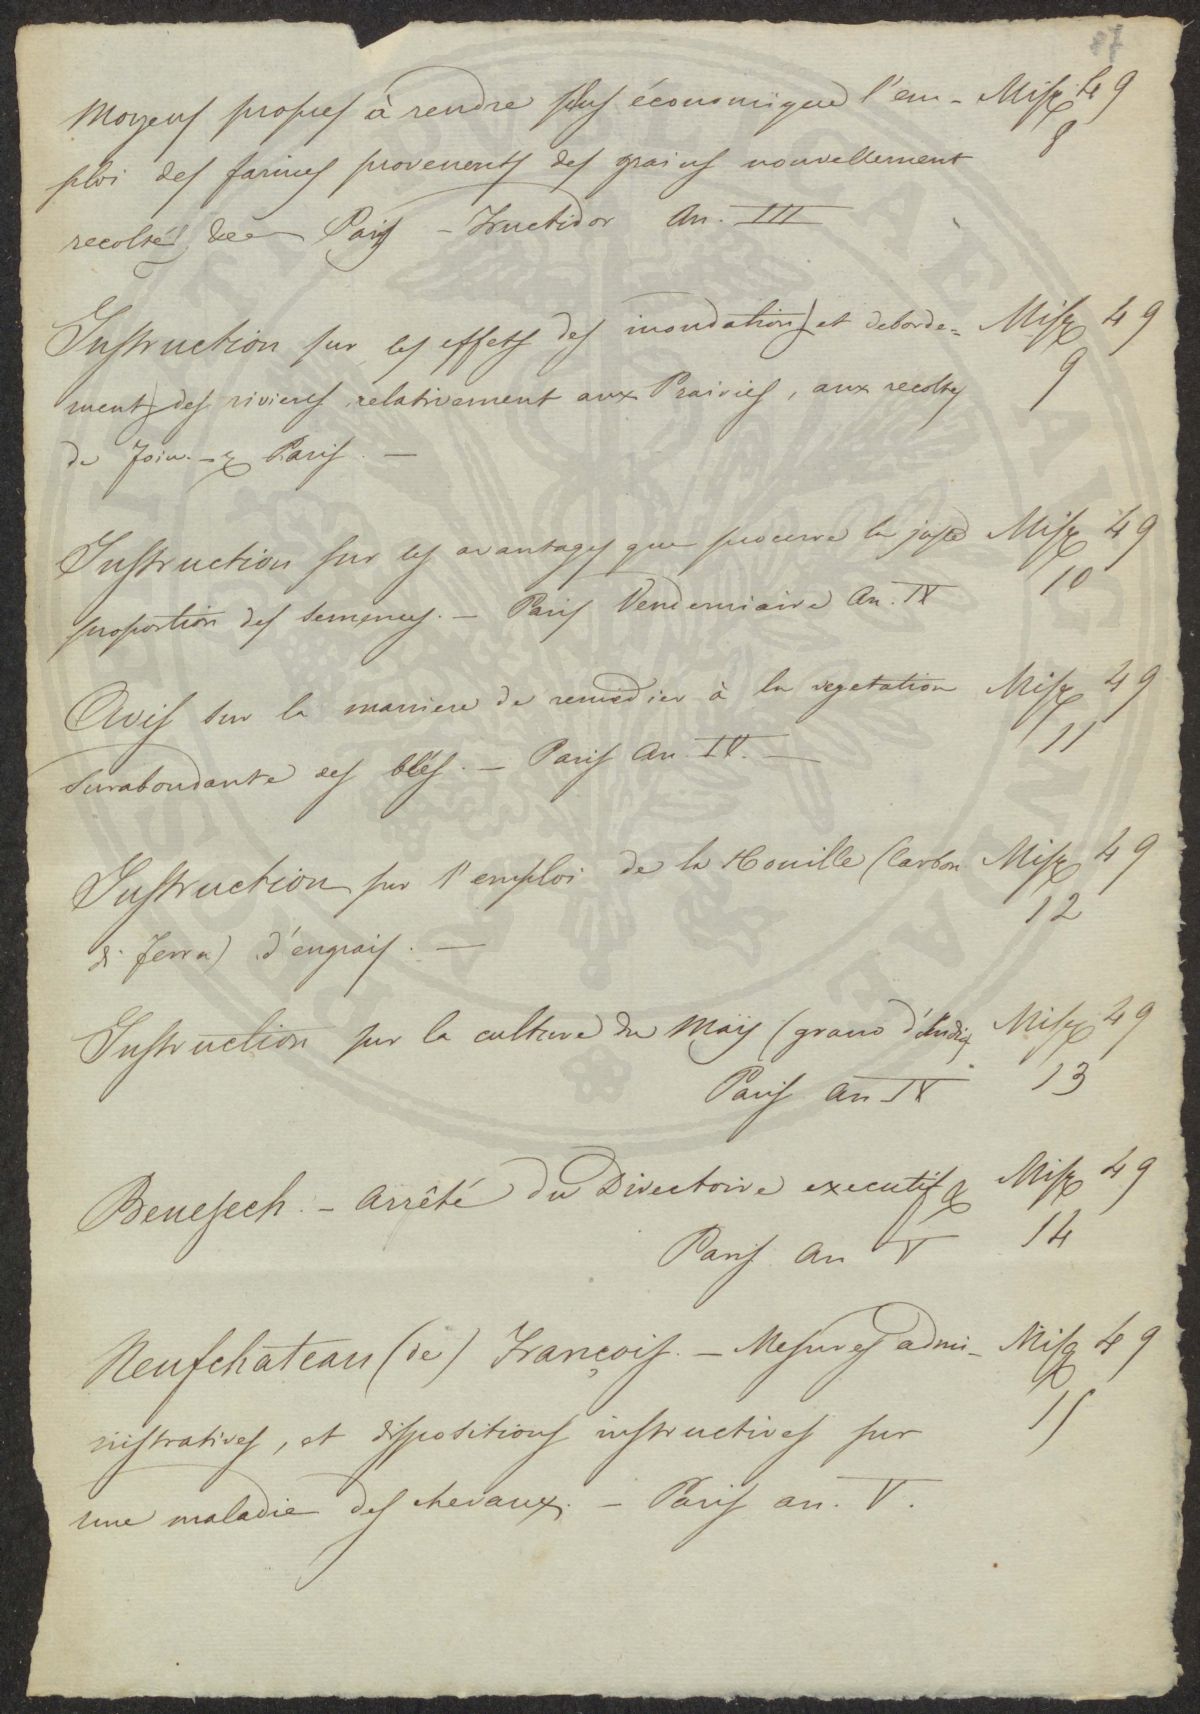 Moyens propres à rendre plus économique l'em- Misc. 49
ploi des farines provenents des grains nouvellement 8
recoltés Paris - Fructidor An. III
Instruction sur les effets des inondations et deborde= Misc. 49
ments des rivieres relativement aux Prairies, aux recoltes 9
de foin. - Paris. -
Instruction sur les avantages que procure la juste Misc. 49
proportion des semences. - Paris Vendemiaire An. IV 10
Avis sur la maniere de remedier à la vegetation Misc. 49
surabondante des blés. - Paris An. IV. - 11
Instruction sur l'emploi de la Houille (Carbon Misc. 49
di Terra) d'engrais. - 12
Instruction sur la culture du Mays (grano d'India Misc. 49
Paris an IV 13
Benesech. - Arrêté du Directoire executif & Misc. 49
Paris an V 14
Neufchateau (de) François. - Mesures admi- Misc. 49
nistratives, et dispositions instructives sur 15
une maladie des chevaux. - Paris an. V.